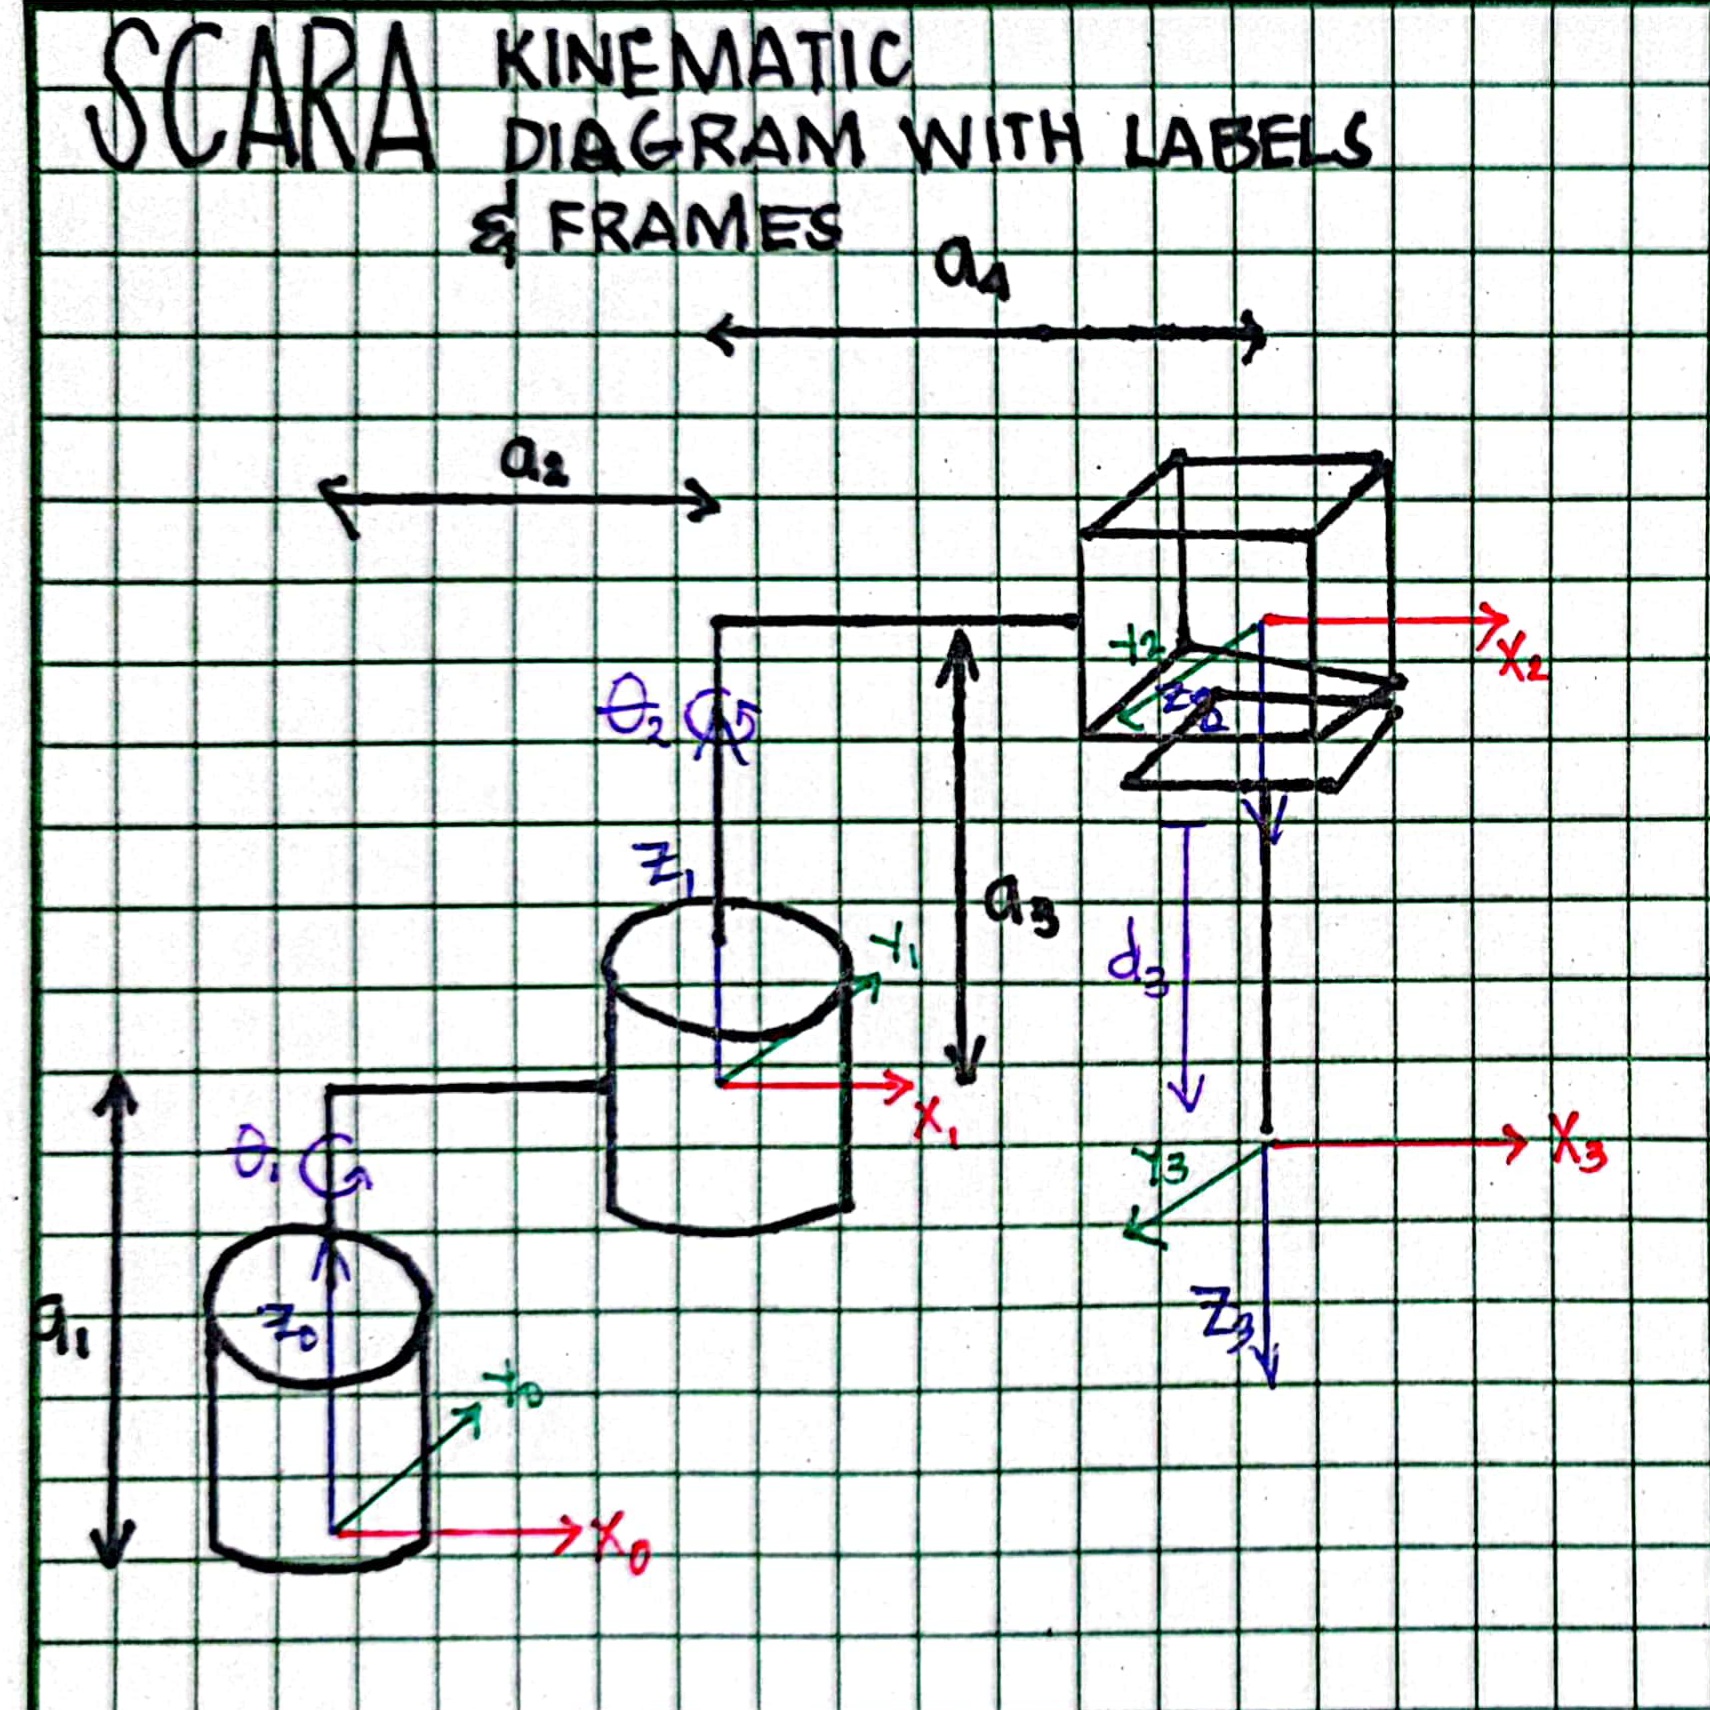 SCARA KINEMATIC
DIAGRAM WITH LABELS
& FRAMES
a4
a2
Y2
X2
Z2
θ2
Z1
Y1
a3
d3
X1
θ1
Y3
X3
a1
Z0
Z3
Y0
X0